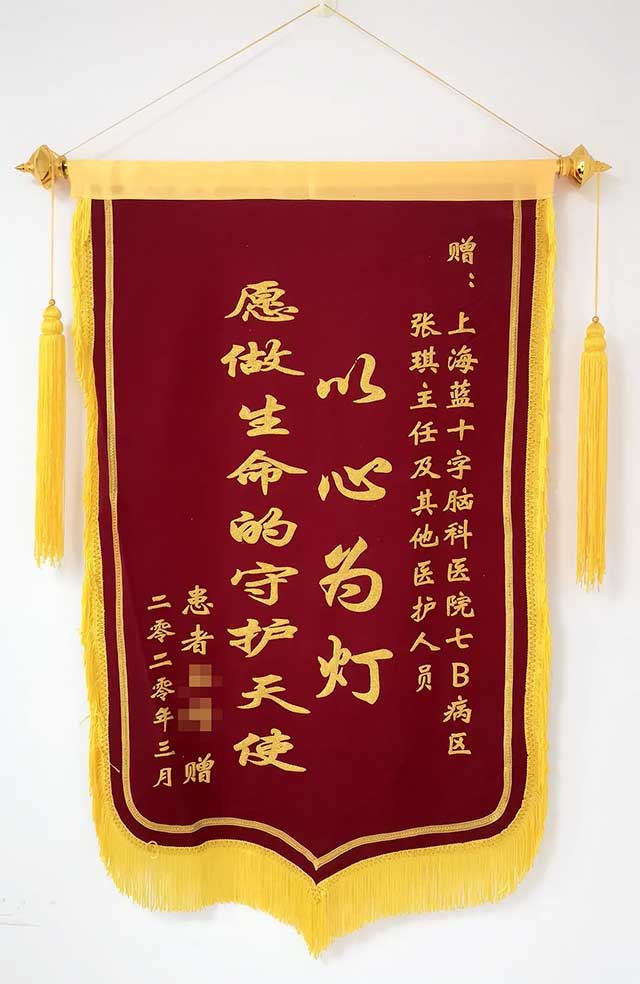 赠：上海蓝十字脑科医院七B病区
张琪主任及其他医护人员
以心为灯
愿做生命的守护天使
患者 赠
二零二零年三月